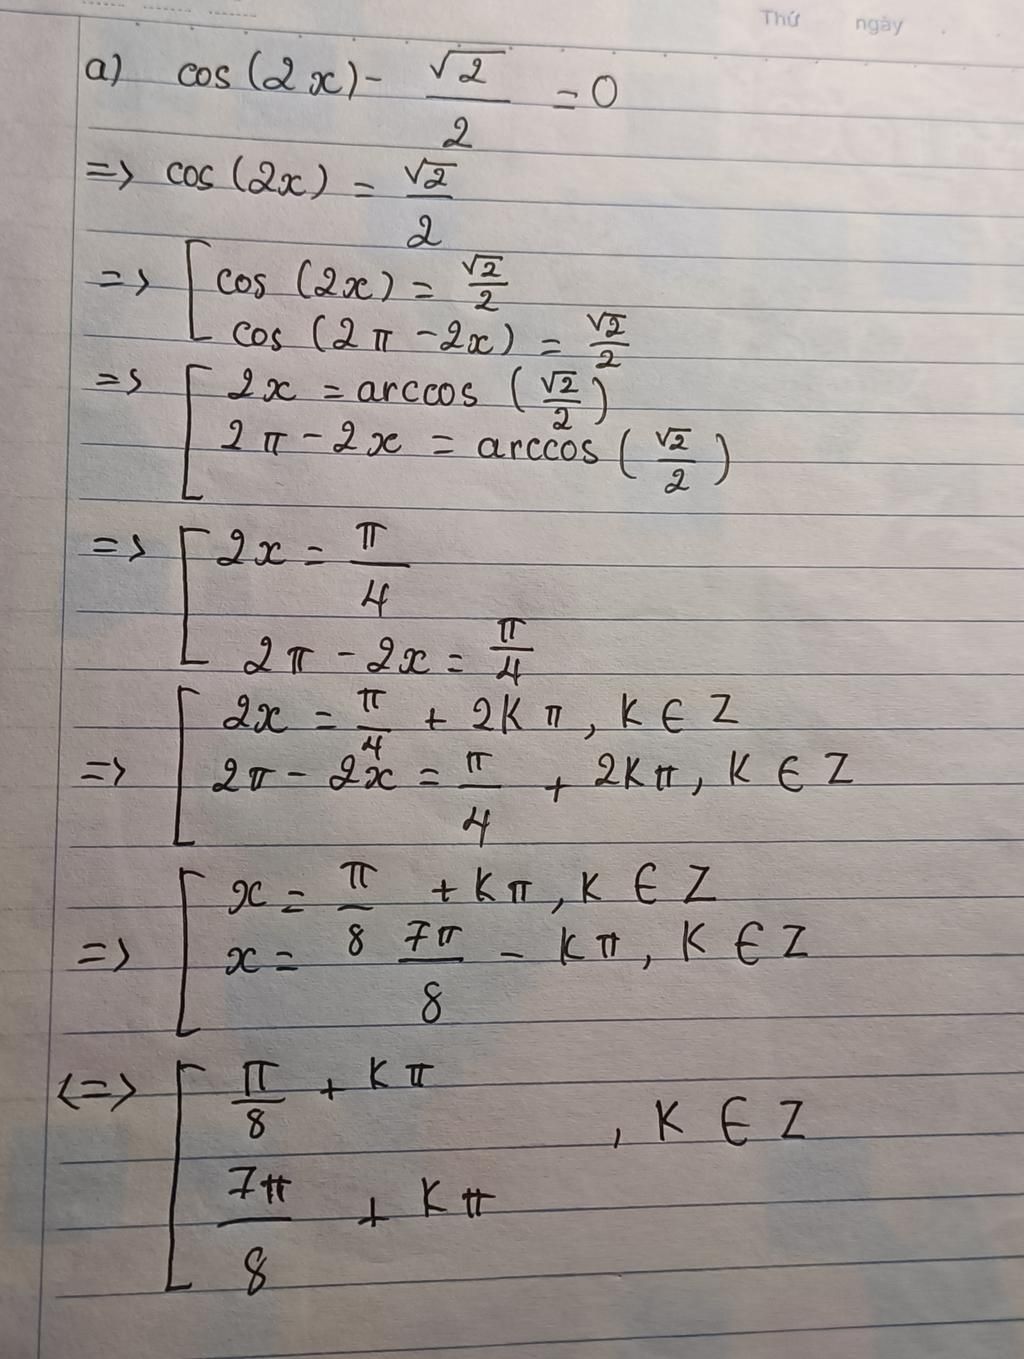 Thứ ngày
a) cos(2x) - √2/2 = 0
=> cos(2x) = √2/2
=> [ cos(2x) = √2/2
cos(2π - 2x) = √2/2
=> [ 2x = arccos(√2/2)
2π - 2x = arccos(√2/2)
=> [ 2x = π/4
2π - 2x = π/4
=> [ 2x = π/4 + 2Kπ, K ∈ Z
2π - 2x = π/4 + 2Kπ, K ∈ Z
=> [ x = π/8 + Kπ, K ∈ Z
x = 7π/8 - Kπ, K ∈ Z
<=> [ π/8 + Kπ
, K ∈ Z
7π/8 + Kπ